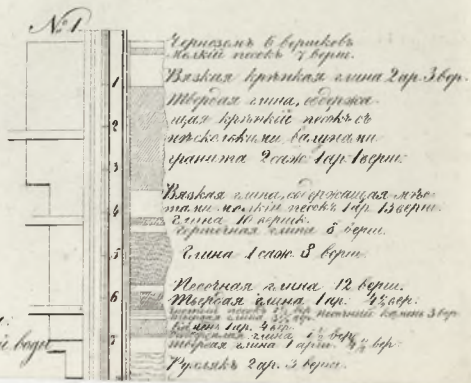 № 1.
Черноземъ 6 вершковъ
мелкій песокъ 7 верш.
1
Вязкая крѣпкая глина 2 ар. 3 вер.
Твердая глина, содержа-
щая крѣпкій песокъ съ
2
нѣсколькими валунами
гранита 2 саж. 1 ар. 1 верш.
3
Вязкая глина, содержащая мѣс-
тами мелкій песокъ 1 ар. 13 верш.
4
Глина 10 вершк.
глина 8 верш.
5
Глина 1 саж 8 верш.
Песочная глина 12 верш.
6
Твердая глина 1 ар. 4½ вер.
песокъ песчаный камень 3 вер.
1 ар. 4 вер.
глина вер.
7
й воды
твердая глина 1 арш. вер.
Рухлякъ 2 ар. 3 верш.